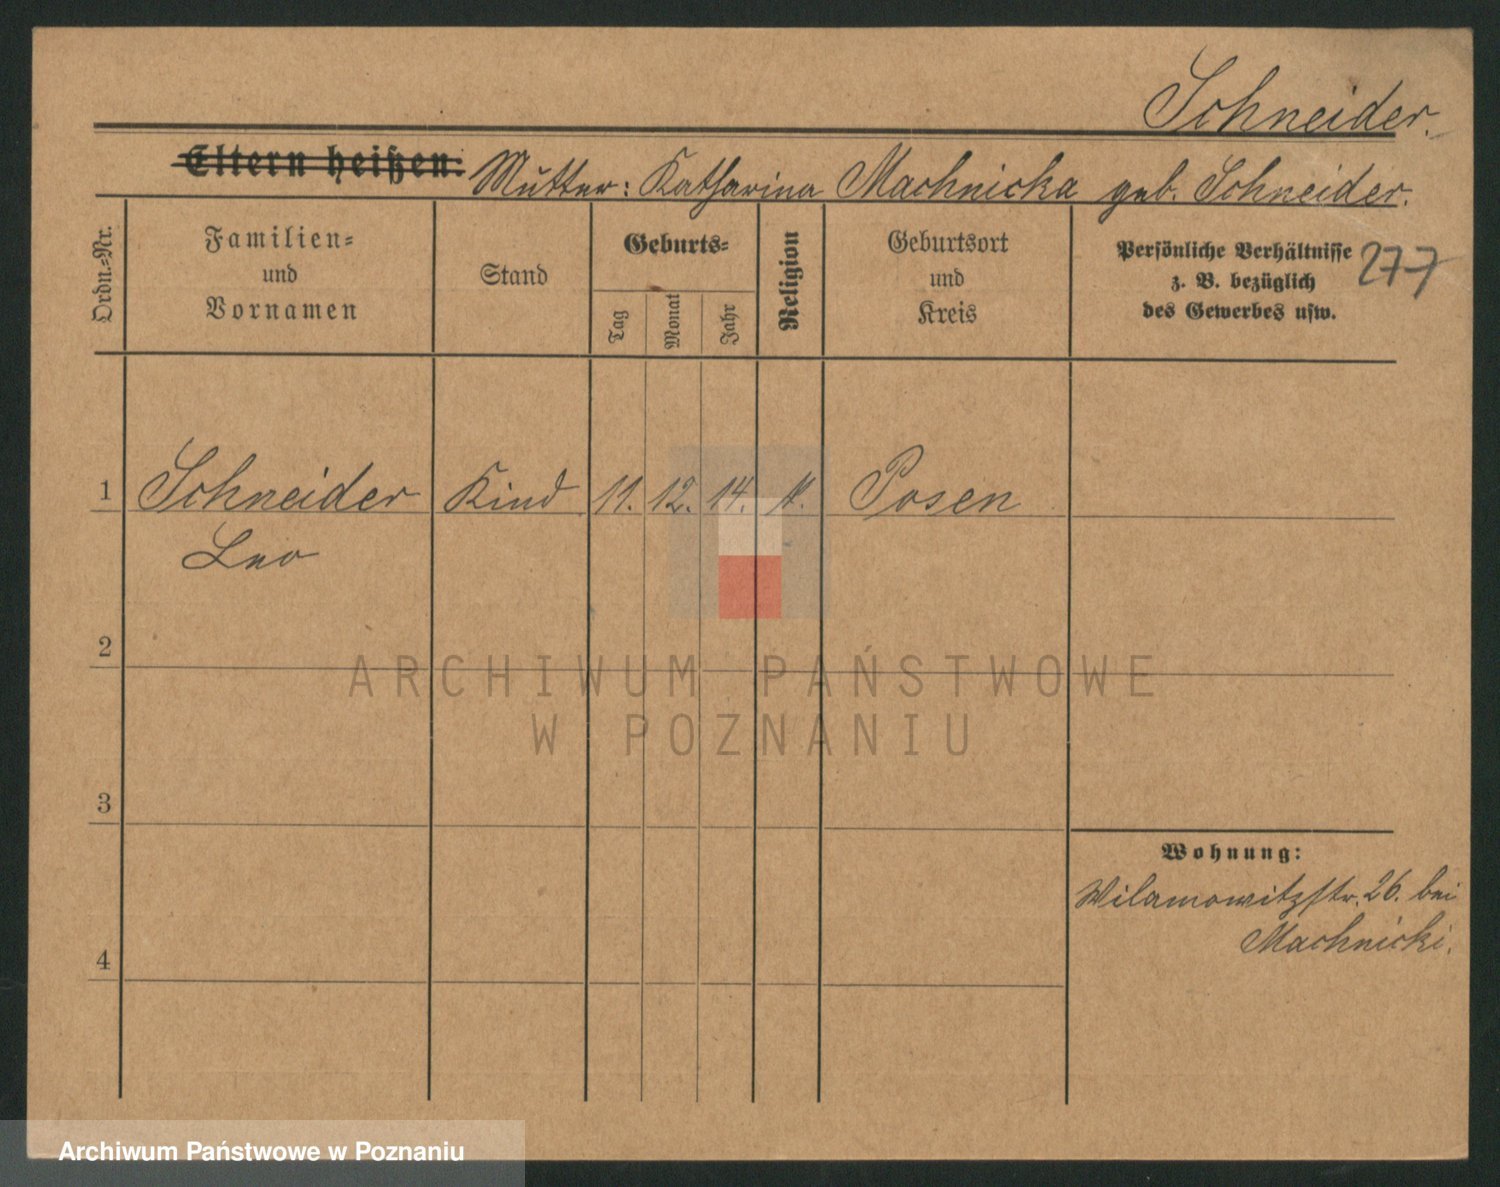 Schneider.
Eltern heißen: Mutter: Katharina Machnicka geb. Schneider.
Ordn.-Nr.
Familien-
und
Vornamen
Stand
Geburts-
Tag
Monat
Jahr
Religion
Geburtsort
und
Kreis
Persönliche Verhältnisse
z. B. bezüglich
des Gewerbes usw.
277
1 Schneider Kind 11. 12. 14. Posen
Leo
2
ARCHIWUM PAŃSTWOWE
W POZNANIU
3
Wohnung:
Wilamowitzstr. 26. bei
Machnicki.
4
Archiwum Państwowe w Poznaniu